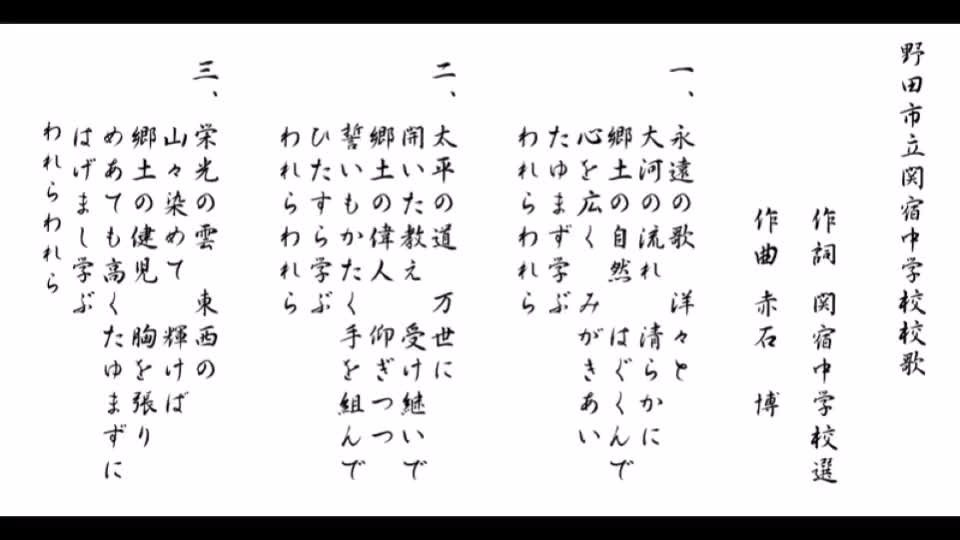 野田市立関宿中学校校歌
作詞 関宿中学校選
作曲 赤石 博
一、
永遠の歌 洋々と
大河の流れ 清らかに
郷土の自然 はぐくんで
心を広く みがきあい
たゆまず学ぶ
われらわれら
二、
太平の道 万世に
開いた教え 受け継いで
郷土の偉人 仰ぎつつ
誓いもかたく 手を組んで
ひたすら学ぶ
われらわれら
三、
栄光の雲 東西の
山々染めて 輝けば
郷土の健児 胸を張り
めあても高くたゆまずに
はげまし学ぶ
われらわれら